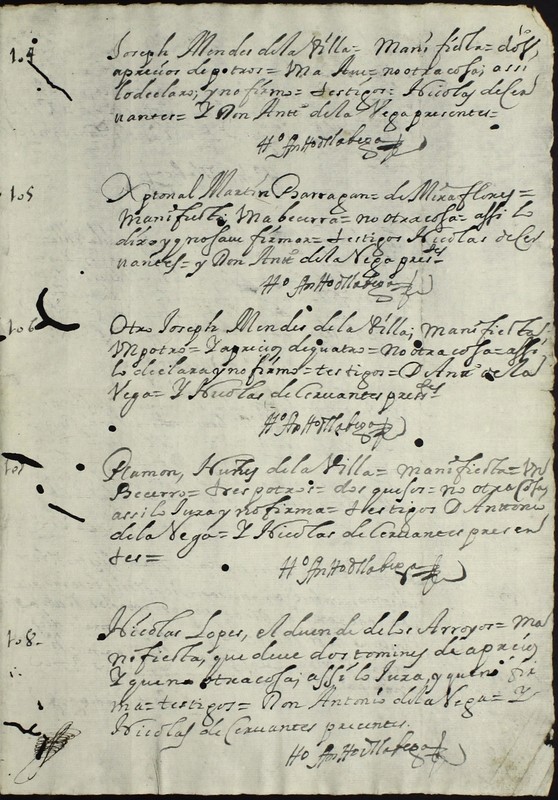 104
Joseph Mendes de la Villa= Manifiesta= dos
aprecios de potros= Una Ave= no otra cosa; assi
lo declaro; y no firmo= testigos= Nicolas de Cer
uantes= Y Don Antº de la Vega presentes=
105
Xptoual Martin Barragan= de Miraflores=
Manifiesta; Una becerra= no otra cosa= assi lo
dixo y q no saue firmar= testigos Nicolas de Cer
uantes= y Don Antº de la Vega pres.tes
106
Otro Joseph Mendes de la Villa; manifiesta
Un potro= Y aprecios de quatro= No otra cosa= assi
lo declara y no firmo= testigos= D Antº de la
Vega= Y Nicolas de Ceruantes pres.tes
Ramon, Nuñes de la Villa= manifiesta= Un
Becerro= tres potros= dos quesos= no otra cosa,
assi lo Jura y no firma= testigos D Antonio
de la Vega= Y Nicolas de Ceruantes presen
tes=
108
Nicolas Lopes, el duende de los Arroyos= ma
nifiesta, que deue dos tomines de aprecio
Y que no otra cosa; assi lo Jura, y que no fir
ma= testigos= Don Antonio de la Vega= Y
Nicolas de Ceruantes precentes.